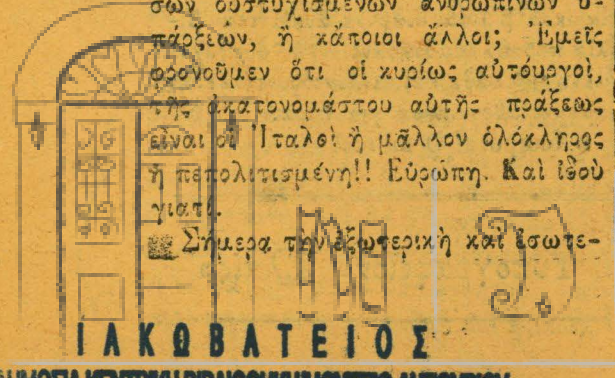 σων δυστυχισμένων ἀνθρωπίνων ὑ-
πάρξεων, ἢ κάποιοι ἄλλοι; Ἐμεῖς
φρονοῦμεν ὅτι οἱ κυρίως αὐτόυργοὶ,
τῆς ἀκατονομάστου αὐτῆς πράξεως
εἶναι οἱ Ἰταλοὶ ἢ μᾶλλον ὁλόκληρος
ἡ πεπολιτισμένη!! Εὐρώπη. Καὶ ἰδοὺ
γιατί.
Σήμερα τὴν ἐξωτερικὴ καὶ ἐσωτε-
ΙΑΚΩΒΑΤΕΙΟΣ